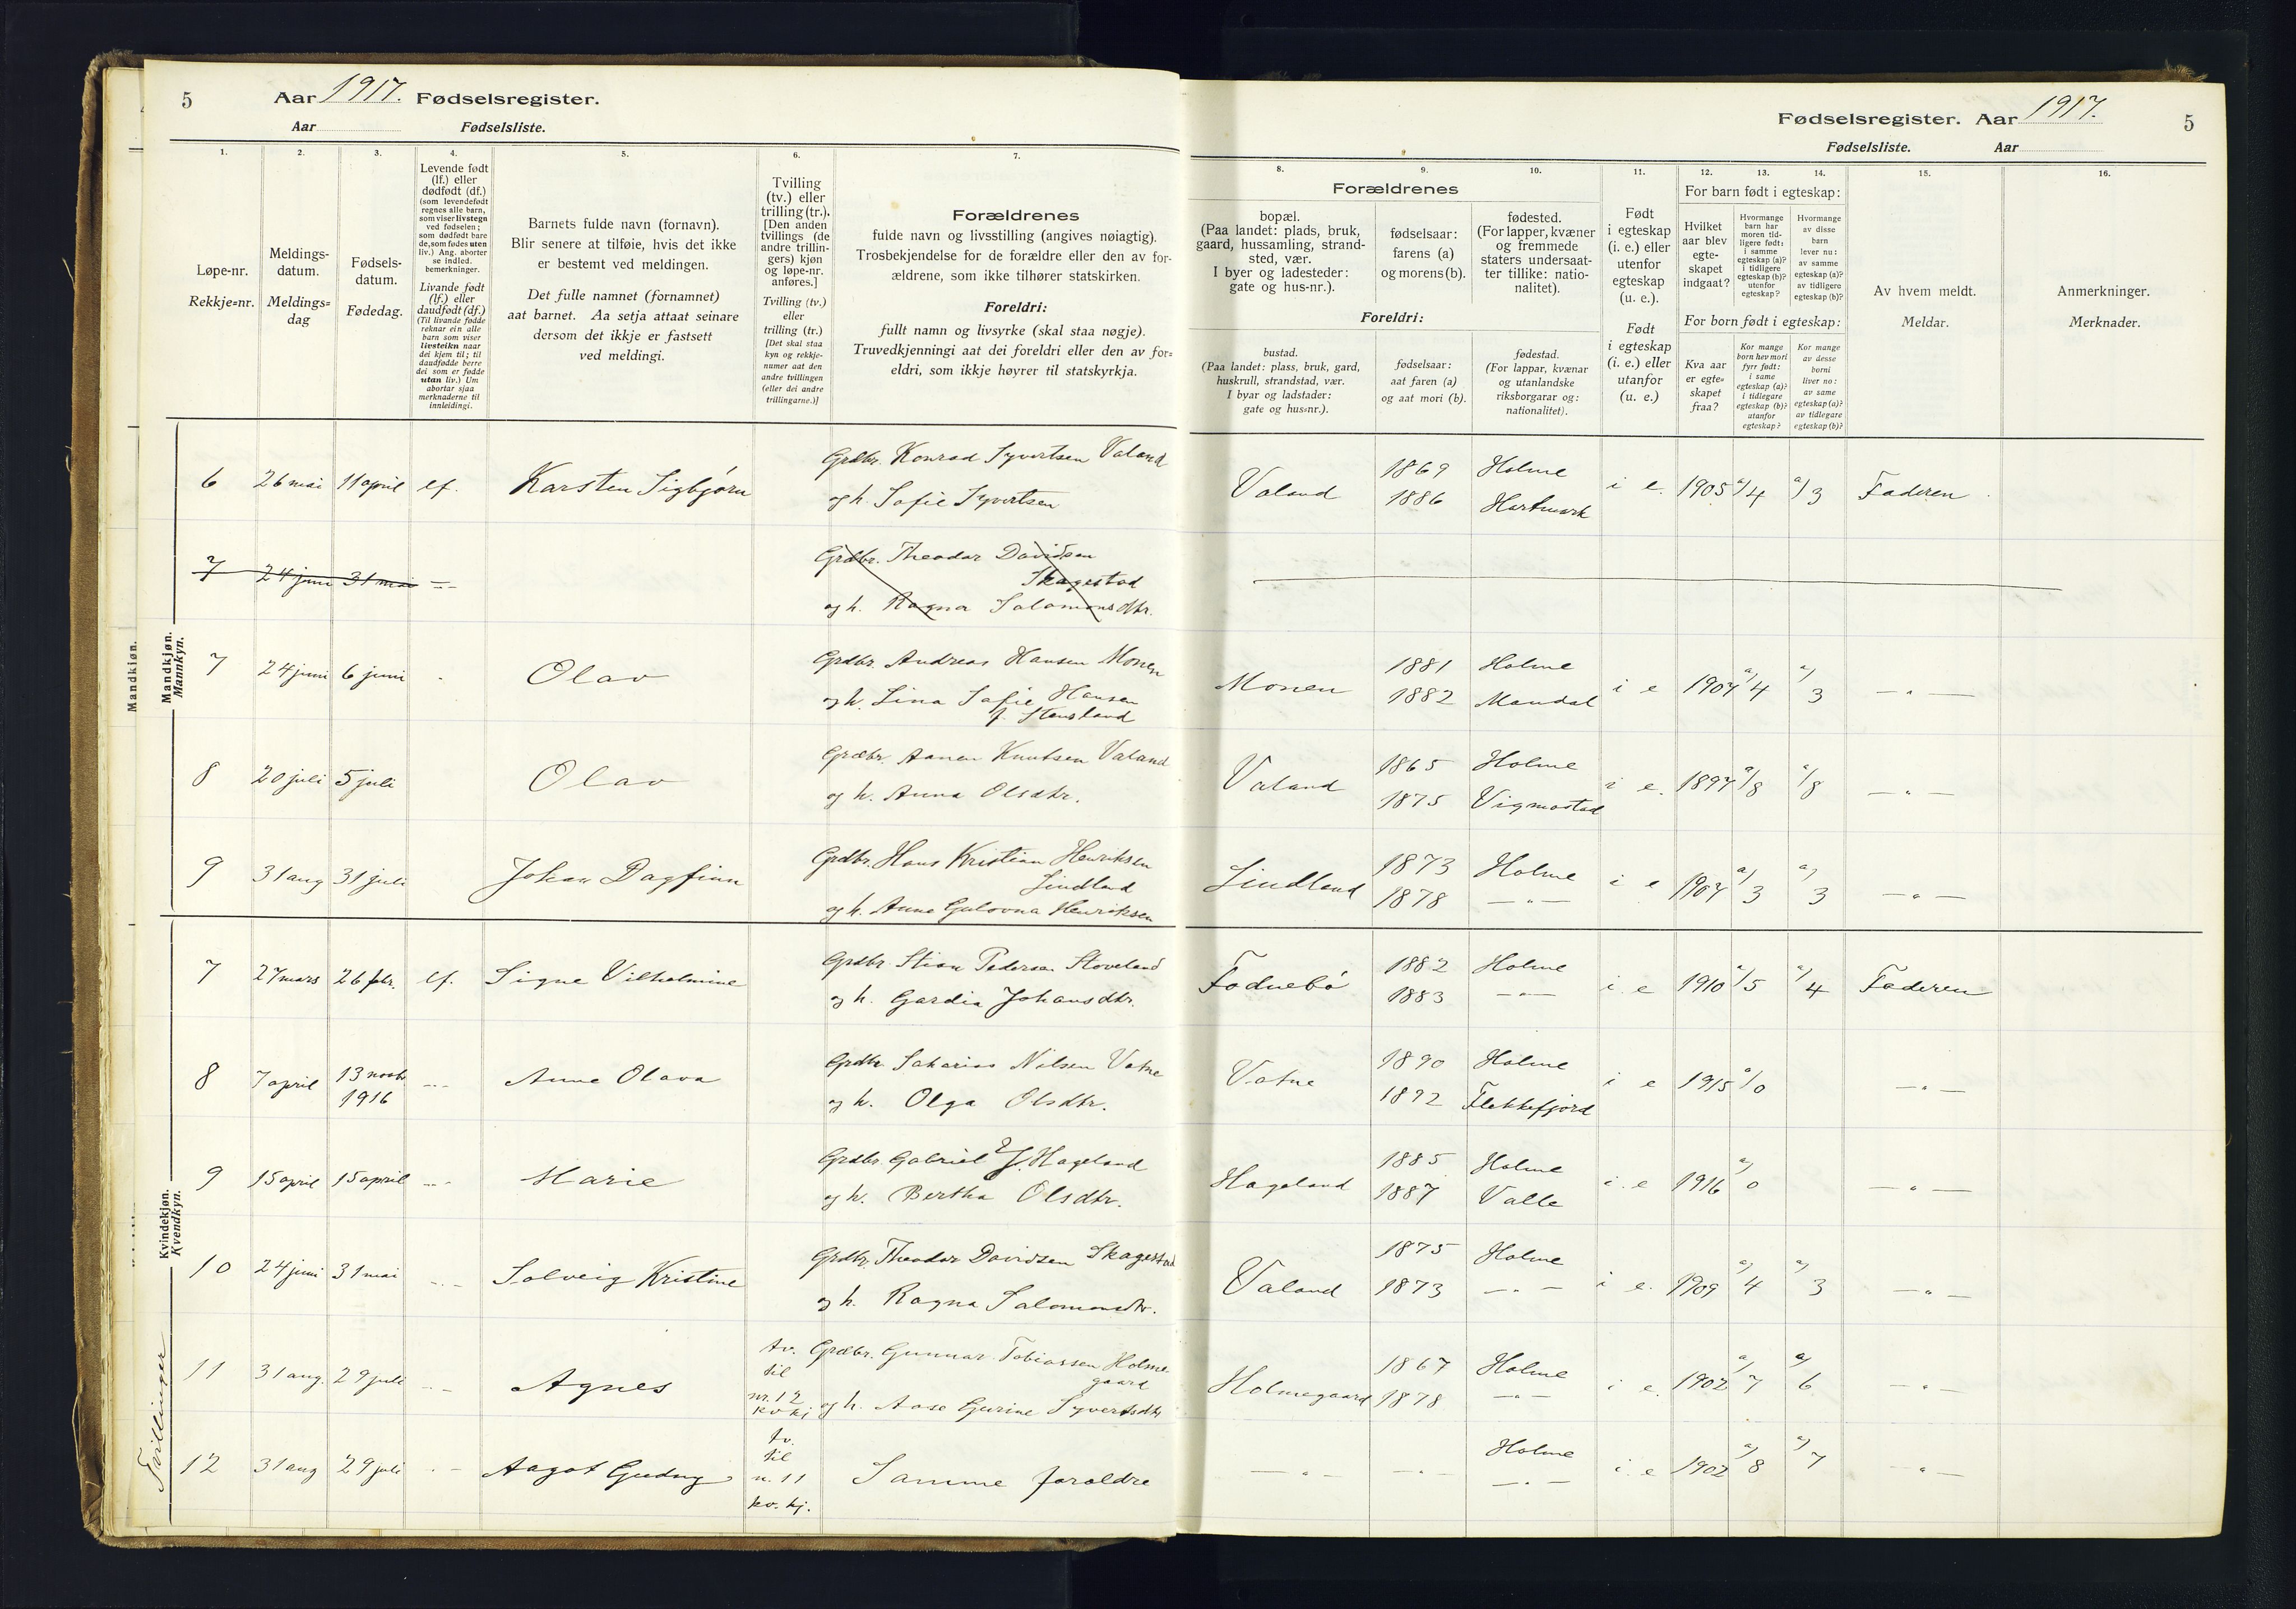 5
Aar 1917. Fødselsregister.
Aar Fødselsliste.
1.
2.
3.
4.
5.
6.
7.
Løpe-nr.
Rekkje=nr.
Meldings-
datum.
Meldings=
dag
Fødsels-
datum.
Fødedag.
Levende født
(lf.) eller
dødfødt (df.)
(som levendefødt
regnes alle barn,
som viser livstegn
ved fødselen;
som dødfødt bare
de, som fødes uten
liv.) Ang. aborter
se indled.
bemerkninger.
Livande født
(lf.) eller
daudfødt (df.)
(Til livande fødde
reknar ein alle
barn som viser
livsteikn naar
dei kjem til; til
daudfødde berre
dei som er fødde
utan liv.) Um
abortar sjaa
merknaderne til
innleidingi.
Barnets fulde navn (fornavn).
Blir senere at tilføie, hvis det ikke
er bestemt ved meldingen.
Det fulle namnet (fornamnet)
aat barnet. Aa setja attaat seinare
dersom det ikkje er fastsett
ved meldingi.
Tvilling
(tv.) eller
trilling (tr.).
[Den anden
tvillings (de
andre trillin-
gers) kjøn
og løpe-nr.
anføres.]
Tvilling (tv.)
eller
trilling (tr.)
[Det skal staa
kyn og rekkje-
numer aat den
andre tvillingen
(eller dei andre
trillingarne.)]
Forældrenes
fulde navn og livsstilling (angives nøiagtig).
Trosbekjendelse for de forældre eller den av for-
ældrene, som ikke tilhører statskirken.
Foreldri:
fullt namn og livsyrke (skal staa nøgje).
Truvedkjenningi aat dei foreldri eller den av for=
eldri, som ikkje høyrer til statskyrkja.
Mandkjøn.
Mandkjøn.
Mannkyn.
6 26 mai 11 april lf. Karsten Sigbjørn
Grdbr. Konrad Syvertsen Valand
og h. Sofie Syvertsen
7 24 juni 31 mai —"—
Grdbr. Theodor Davidsen
Skagestad
og h. Ragna Salomonsdtr.
7 24 juni 6 juni Olav
Grdbr. Andreas Hansen Monen
og h. Lina Sofie Hansen
f. Stensland
8 20 juli 5 juli Olav
Grdbr. Aanen Knutsen Valand
og h. Anna Olsdtr.
9 31 aug 31 juli Johan Dagfinn
Grdbr. Hans Kristian Henriksen
Lindland
og h. Anne Gulovna Henriksen
Kvindekjøn.
Kvendkyn.
7 27 mars 26 febr. lf. Signe Vilhelmine
Grdbr. Stian Pedersen Stoveland
og h. Gardia Johansdtr.
8 7 april 13 novbr 1916 —"— Anne Olava
Grdbr. Sakarias Nilsen Vatne
og h. Olga Olsdtr.
9 15 april 15 april —"— Marie
Grdbr. Gabriel J. Hageland
og h. Bertha Olsdtr.
10 24 juni 31 mai —"— Solveig Kristine
Grdbr. Theodor Davidsen Skagestad
og h. Ragna Salomonsdtr.
Tvillinger
11 31 aug. 29 juli —"— Agnes
tv.
til
nr. 12
kv. kj
Grdbr. Gunnar Tobiassen Holme-
gaard
og h. Aase Gurine Syvertsdtr
12 31 aug 29 juli —"— Aagot Gudny
tv.
til
n. 11
kv. kj.
Samme foræl­dre
Fødselsregister. Aar 1917.
5
Fødselsliste. Aar
8.
9.
10.
11.
12.
13.
14.
15.
16.
Forældrenes
bopæl.
(Paa landet: plads, bruk,
gaard, hussamling, strand-
sted, vær.
I byer og ladesteder:
gate og hus-nr.).
fødselsaar:
farens (a)
og morens (b).
fødested.
(For lapper, kvæner
og fremmede
staters undersaat-
ter tillike: natio-
nalitet).
Foreldri:
bustad.
(Paa landet: plass, bruk, gard,
huskrull, strandstad, vær.
I byar og ladstader:
gate og hus=nr.).
fødselsaar:
aat faren (a)
og aat mori (b).
fødestad.
(For lappar, kvænar
og utanlandske
riksborgarar og:
nationalitet).
Født
i egteskap
(i. e.) eller
utenfor
egteskap
(u. e.).
Født
i egteskap
(i. e.) eller
utanfor
(u. e.)
For barn født i egteskap:
Hvilket
aar blev
egte-
skapet
indgaat?
Hvormange
barn har
moren tid-
ligere født:
i samme
egteskap (a)?
i tidligere
egteskap (b)?
utenfor
egteskap?
Hvormange
av disse
barn
lever nu:
av samme
egteskap (a)?
av tidligere
egteskap (b)?
For born født i egteskap:
Kva aar
er egte=
skapet
fraa?
Kor mange
born hev mori
fyrr født:
i same
egteskap (a)?
i tidlegare
egteskap (b)?
utanfor
egteskap?
Kor mange
av desse
borni
liver no:
av same
egteskap (a)?
av tidlegare
egteskap (b)?
Av hvem meldt.
Meldar.
Anmerkninger.
Merknader.
Valand 1869 Holme i e. 1905 a/4 a/3 Faderen
1886 Hartmark
Monen 1881 Holme i e 1907 a/4 a/3 —"—
1882 Mandal
Valand 1865 Holme i e. 1897 a/8 a/8 —"—
1875 Vigmostad
Lindland 1873 Holme i e 1907 a/3 a/3 —"—
1878 —"—
Fodnebø 1882 Holme i. e 1910 a/5 a/4 Faderen
1883 —"—
Vatne 1890 Holme i e 1915 a/0 —"—
1892 Flekkefjord
Hageland 1885 Holme i. e 1916 a/0 —"—
1887 Valle
Valand 1875 Holme i e. 1909 a/4 a/3 —"—
1873 —"—
Holmegaard 1867 Holme i e. 1902 a/7 a/6 —"—
1878 —"—
—"— —"— Holme i. e 1902 a/8 a/7 —"—
—"—